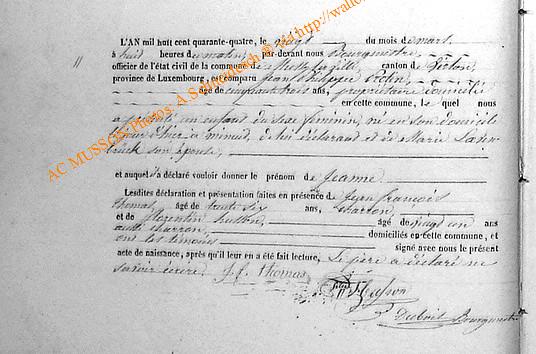 L'AN mil huit cent quarante-quatre, le vingt du mois de mars
à huit heures du matin, par-devant nous Bourgmestre
officier de l'état civil de la commune de canton de Virton,
province de Luxembourg, est comparu Jean
âgé de cinquante trois ans, propriétaire domicilié
en cette commune, le quel nous
a présenté un enfant du sexe féminin, né en son domicile
d'hier à minuit, de lui déclarant et de Marie
son épouse,
et auquel a déclaré vouloir donner le prénom de Jeanne
Lesdites déclaration et présentation faites en présence de Jean françois
thomas, âgé de trente six ans, charron,
et de florentin husson, âgé de vingt un ans
aussi charron, domiciliés en cette commune, et
ont les témoins signé avec nous le présent
acte de naissance, après qu'il leur en a été fait lecture, Le père a déclaré ne
savoir écrire. J. f. thomas
husson
Bourgmestre
AC MUSSON-Photos: A.S http://wallo